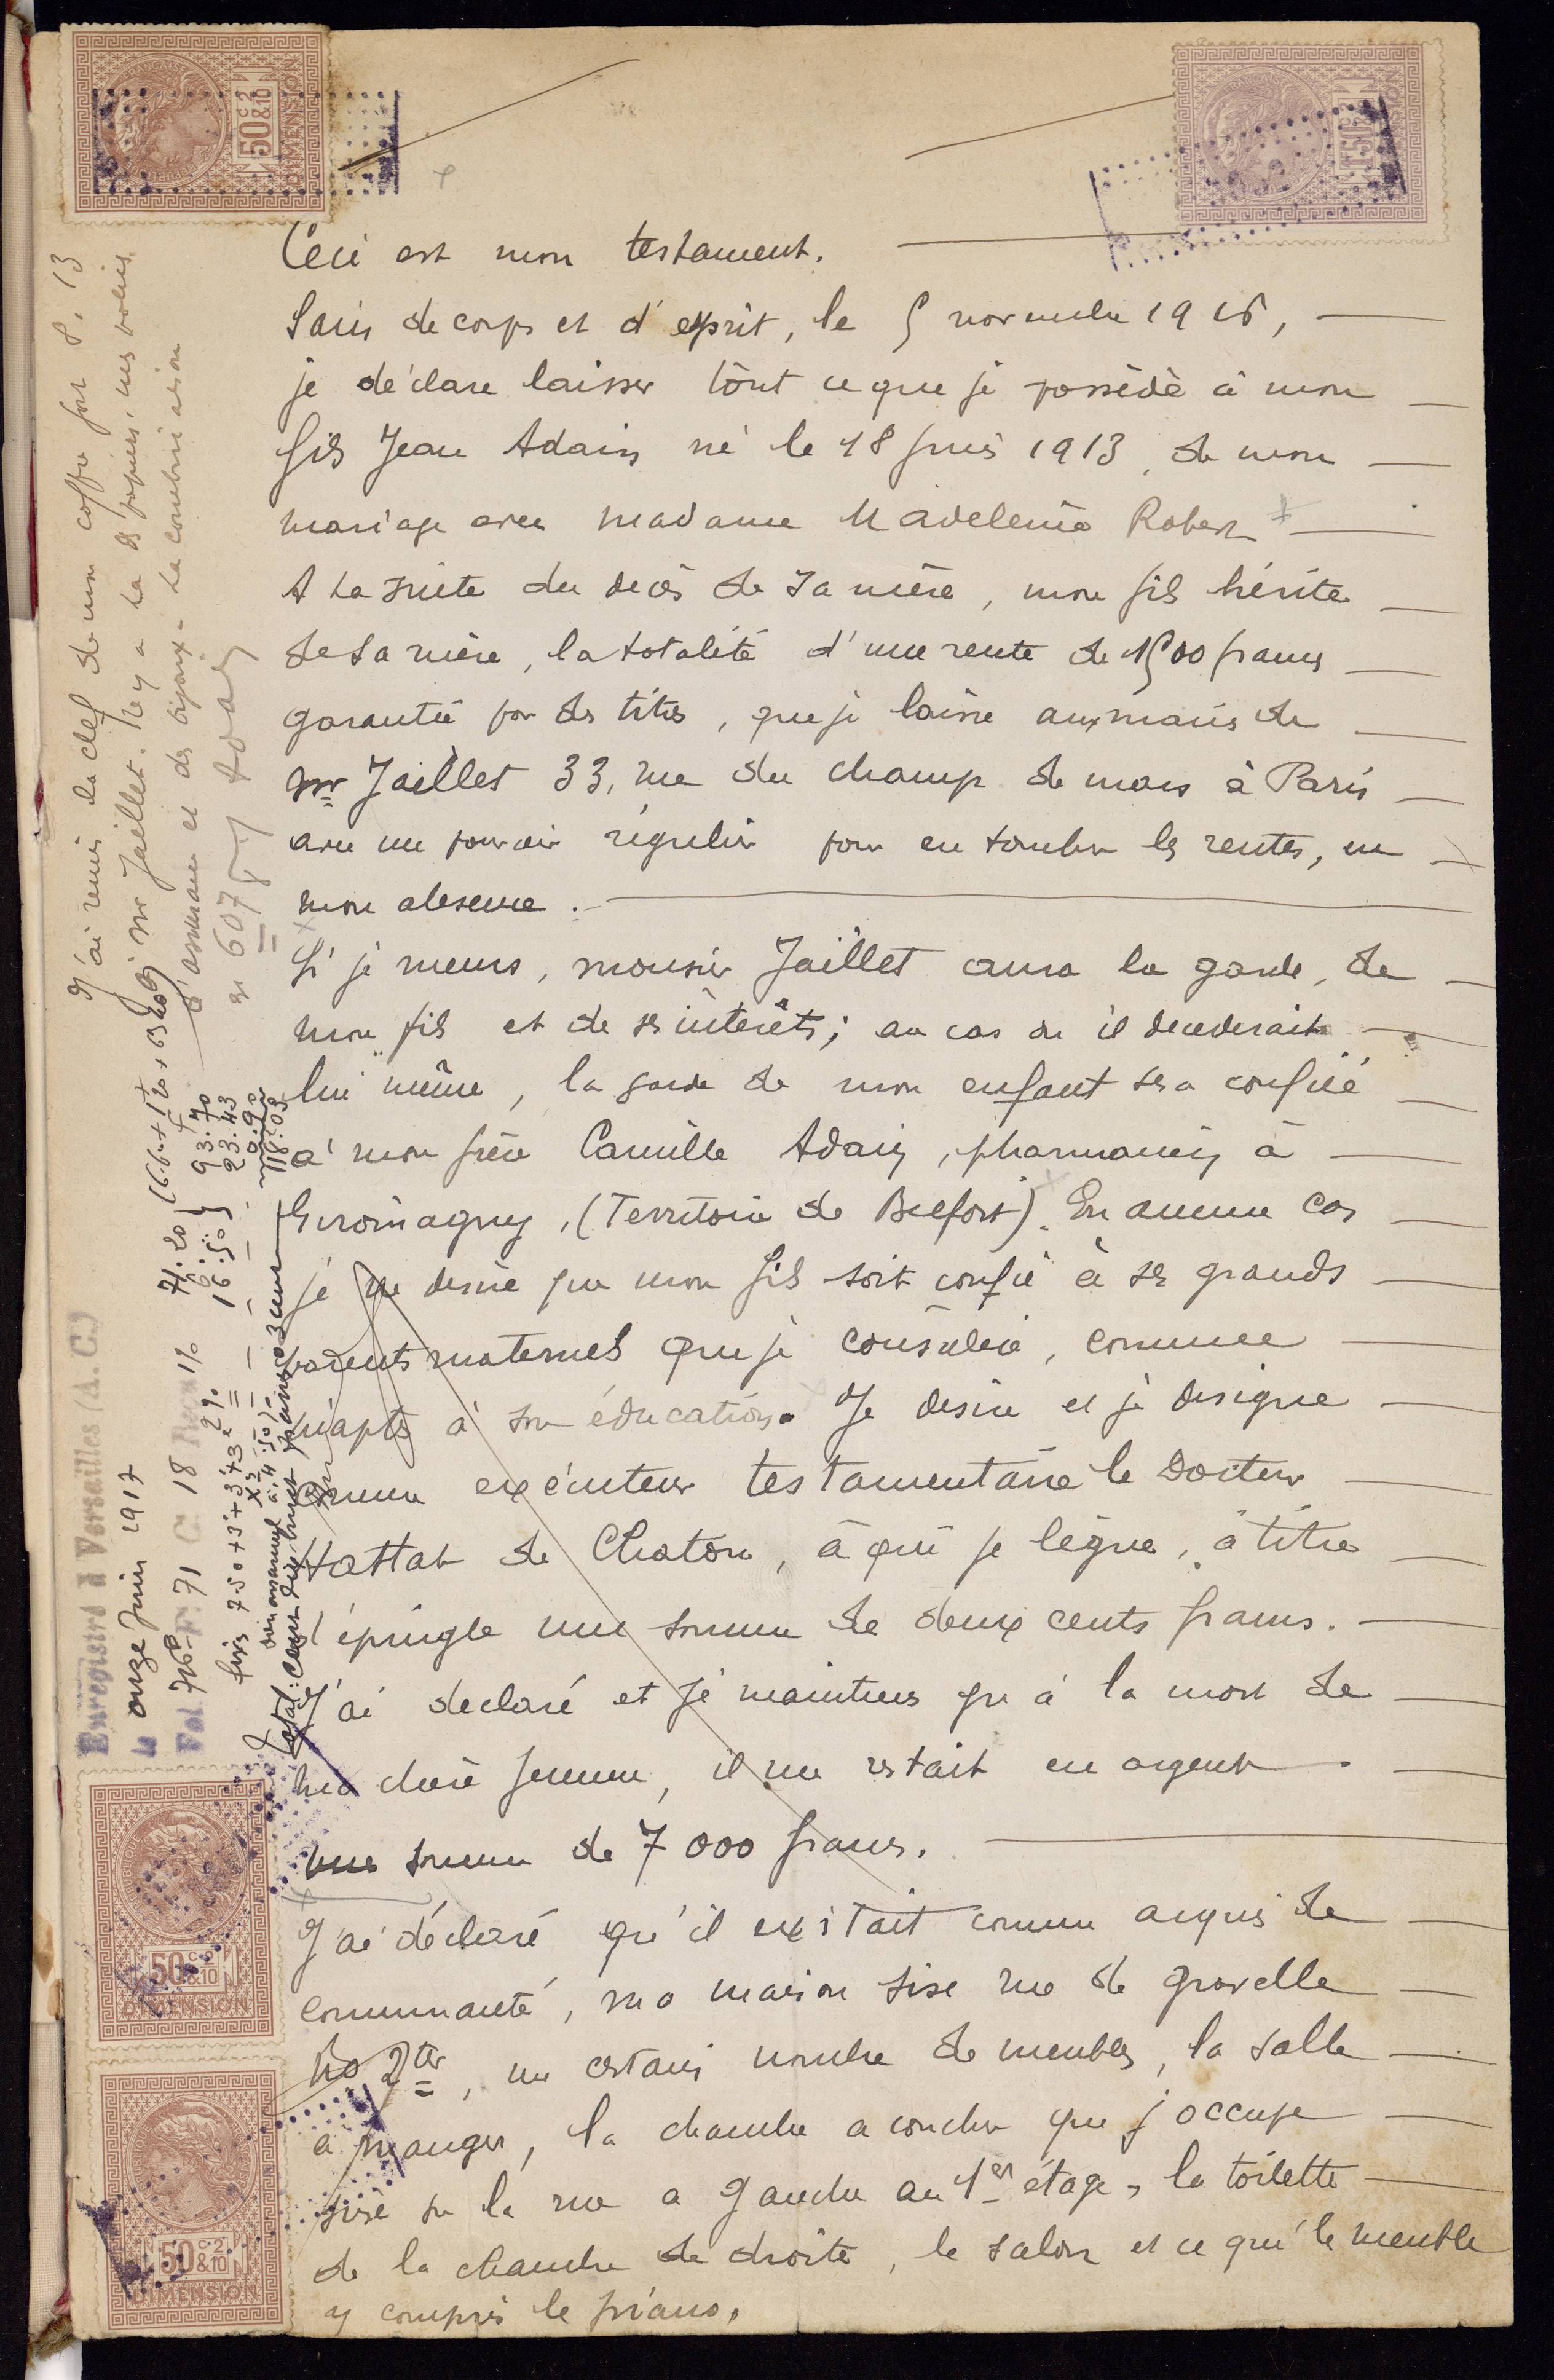 Ceci est mon testament.
Sain de corps et d'esprit, le 5 novembre 1916,
je déclare laisser tout ce que je possède à mon
fils Jean Adam né le 18 juin 1913, de mon
mariage avec madame Madeleine Robert
A la suite du décès de sa mère, mon fils hérite
de sa mère, la totalité d'une rente de 1500 francs
garantie par des titres, que je laisse aux mains de
Mr Jaillet 33, rue du champ de mars à Paris
avec un pouvoir régulier pour en toucher les rentes, en
mon absence.
Si je meurs, monsieur Jaillet aura la garde, de
mon fils et de ses intérêts; au cas ou il decederait
lui même, la garde de mon enfant sera confiée
a' mon frère Camille Adam, pharmacien à
Giromagny, (Territoire de Belfort). En aucun cas
je ne desire que mon fils soit confié à ses grands
parents maternels que je considère, comme
inapte à son éducation. Je desire et je designe
comme exécuteur testamentaire le Docteur
Hattat de Chatou, à qui je lègue, à titre
d'épingle une somme de deux cents francs.
J'ai declaré et je maintiens qu'à la mort de
ma chère femme, il me restait en argent
une somme de 7 000 francs.
J'ai déclaré qu'il existait comme acquis de
communauté, ma maison sise rue de Gravelle
no 2 ter, un certain nombre de meubles, la salle
a manger, la chambre a coucher que j'occupe
sise sur la rue a gauche au 1er étage, la toilette
de la chambre de droite, le salon et ce qui le meuble
y compris le piano.
J'ai remis la clef de mon coffre fort S. 13
à mr Jaillet. Il y a là des papiers, mes polices
d'assurance et des bijoux - la combinaison
est 607
Enregistré à Versailles (A. C.)
le onze Juin 1917
Fol. 71 C. 18
71.20
16.50
93.70
23.43
0.90
118.03
fixe 7.50 + 3 + 3 + 3
50 c 2 &10
DIMENSION
50 c 2 &10
DIMENSION
50 c 2 &10
DIMENSION
50 c 2
DIMENSION